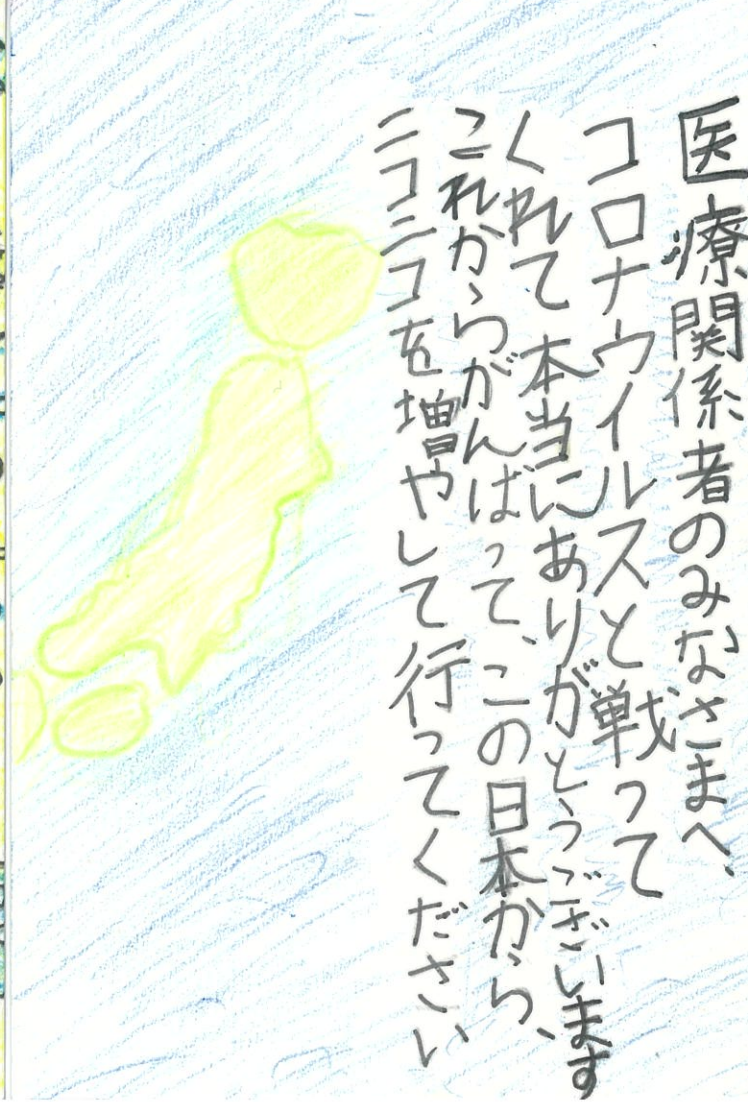 医療関係者のみなさまへ、
コロナウイルスと戦って
くれて本当にありがとうございます
これからがんばって、この日本から、
ニコニコを増やして行ってください